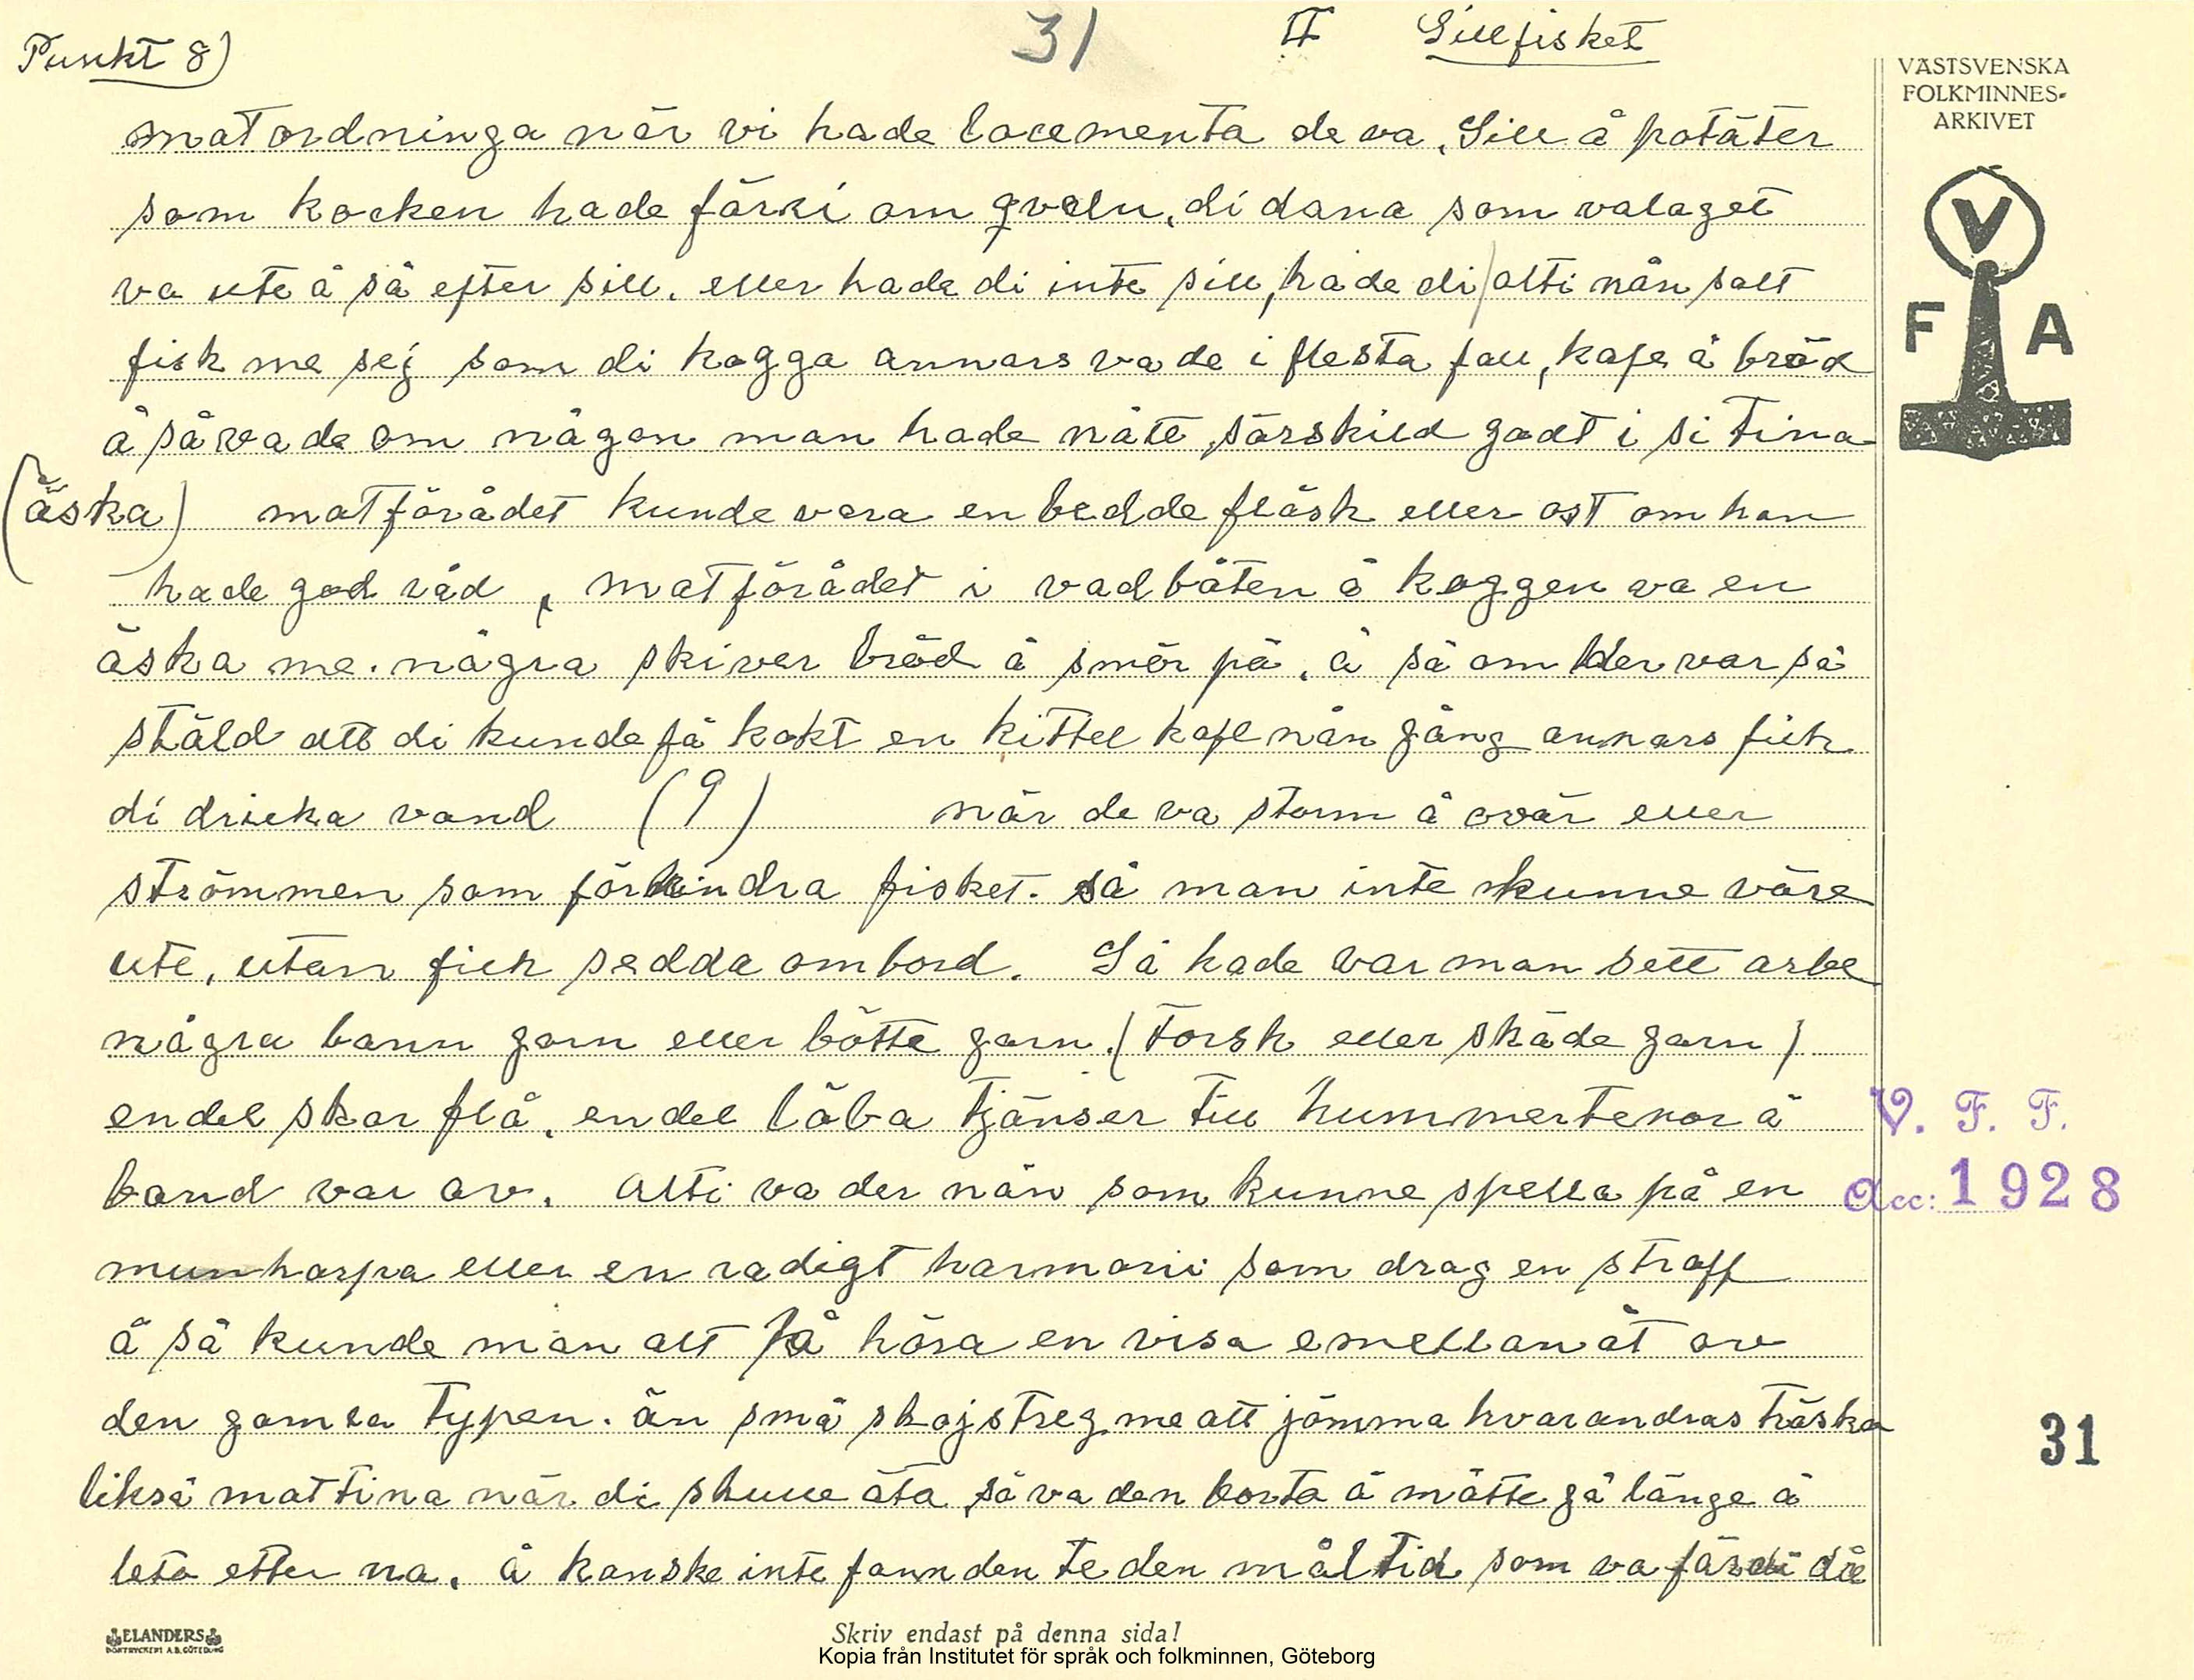 Punkt 8)
31
II Sillfisket
VÄSTSVENSKA
FOLKMINNES-
ARKIVET
V
F A
matordninga när vi hade locementa de va, Sill å potäter
som kocken hade färki om qveln, di dana som valaget
va ute å så efter sill. eller hade di inte sill, hade di alti nån salt
fisk me sej som di kogga annars va de i flesta fall, kafe å bröd
å så va de om någon man hade nått särskild godt i si tina
(äska) matförådet kunde vara en bedde fläsk eller ost om han
hade god råd, matförådet i vadbåten å koggen va en
äska me. några skiver bröd å smör på, å så om der var så
ställd att di kunde få kokt en kittel kafe nån gång annars fick
di dricka vand (9) när de va storm å ovär eller
strömmen som förhindra fisket. så man inte kunne väre
ute, utan fick sedda ombord. Så hade var man sett arbe
några bann garn eller bötte garn. (Torsk eller skäde garn)
endel skar flå, endel läba tjänser till hummertenor å
band var av. Alti va der nån som kunne spella på en
munharpa eller en radigt harmoni som drog en straff
å så kunde man alt få höra en visa emellanåt av
den gamla typen. än små skojstreg me att jömma hvarandras träska
likså mattina när di skulle äta, så va den borta å måtte gå länge å
leta etter na, å kanske inte fann den te den måltid som va färdi då
V. F. F.
Acc: 1928
31
ELANDERS
BOKTRYCKERI A.B. GÖTEBORG
Skriv endast på denna sida!
Kopia från Institutet för språk och folkminnen, Göteborg